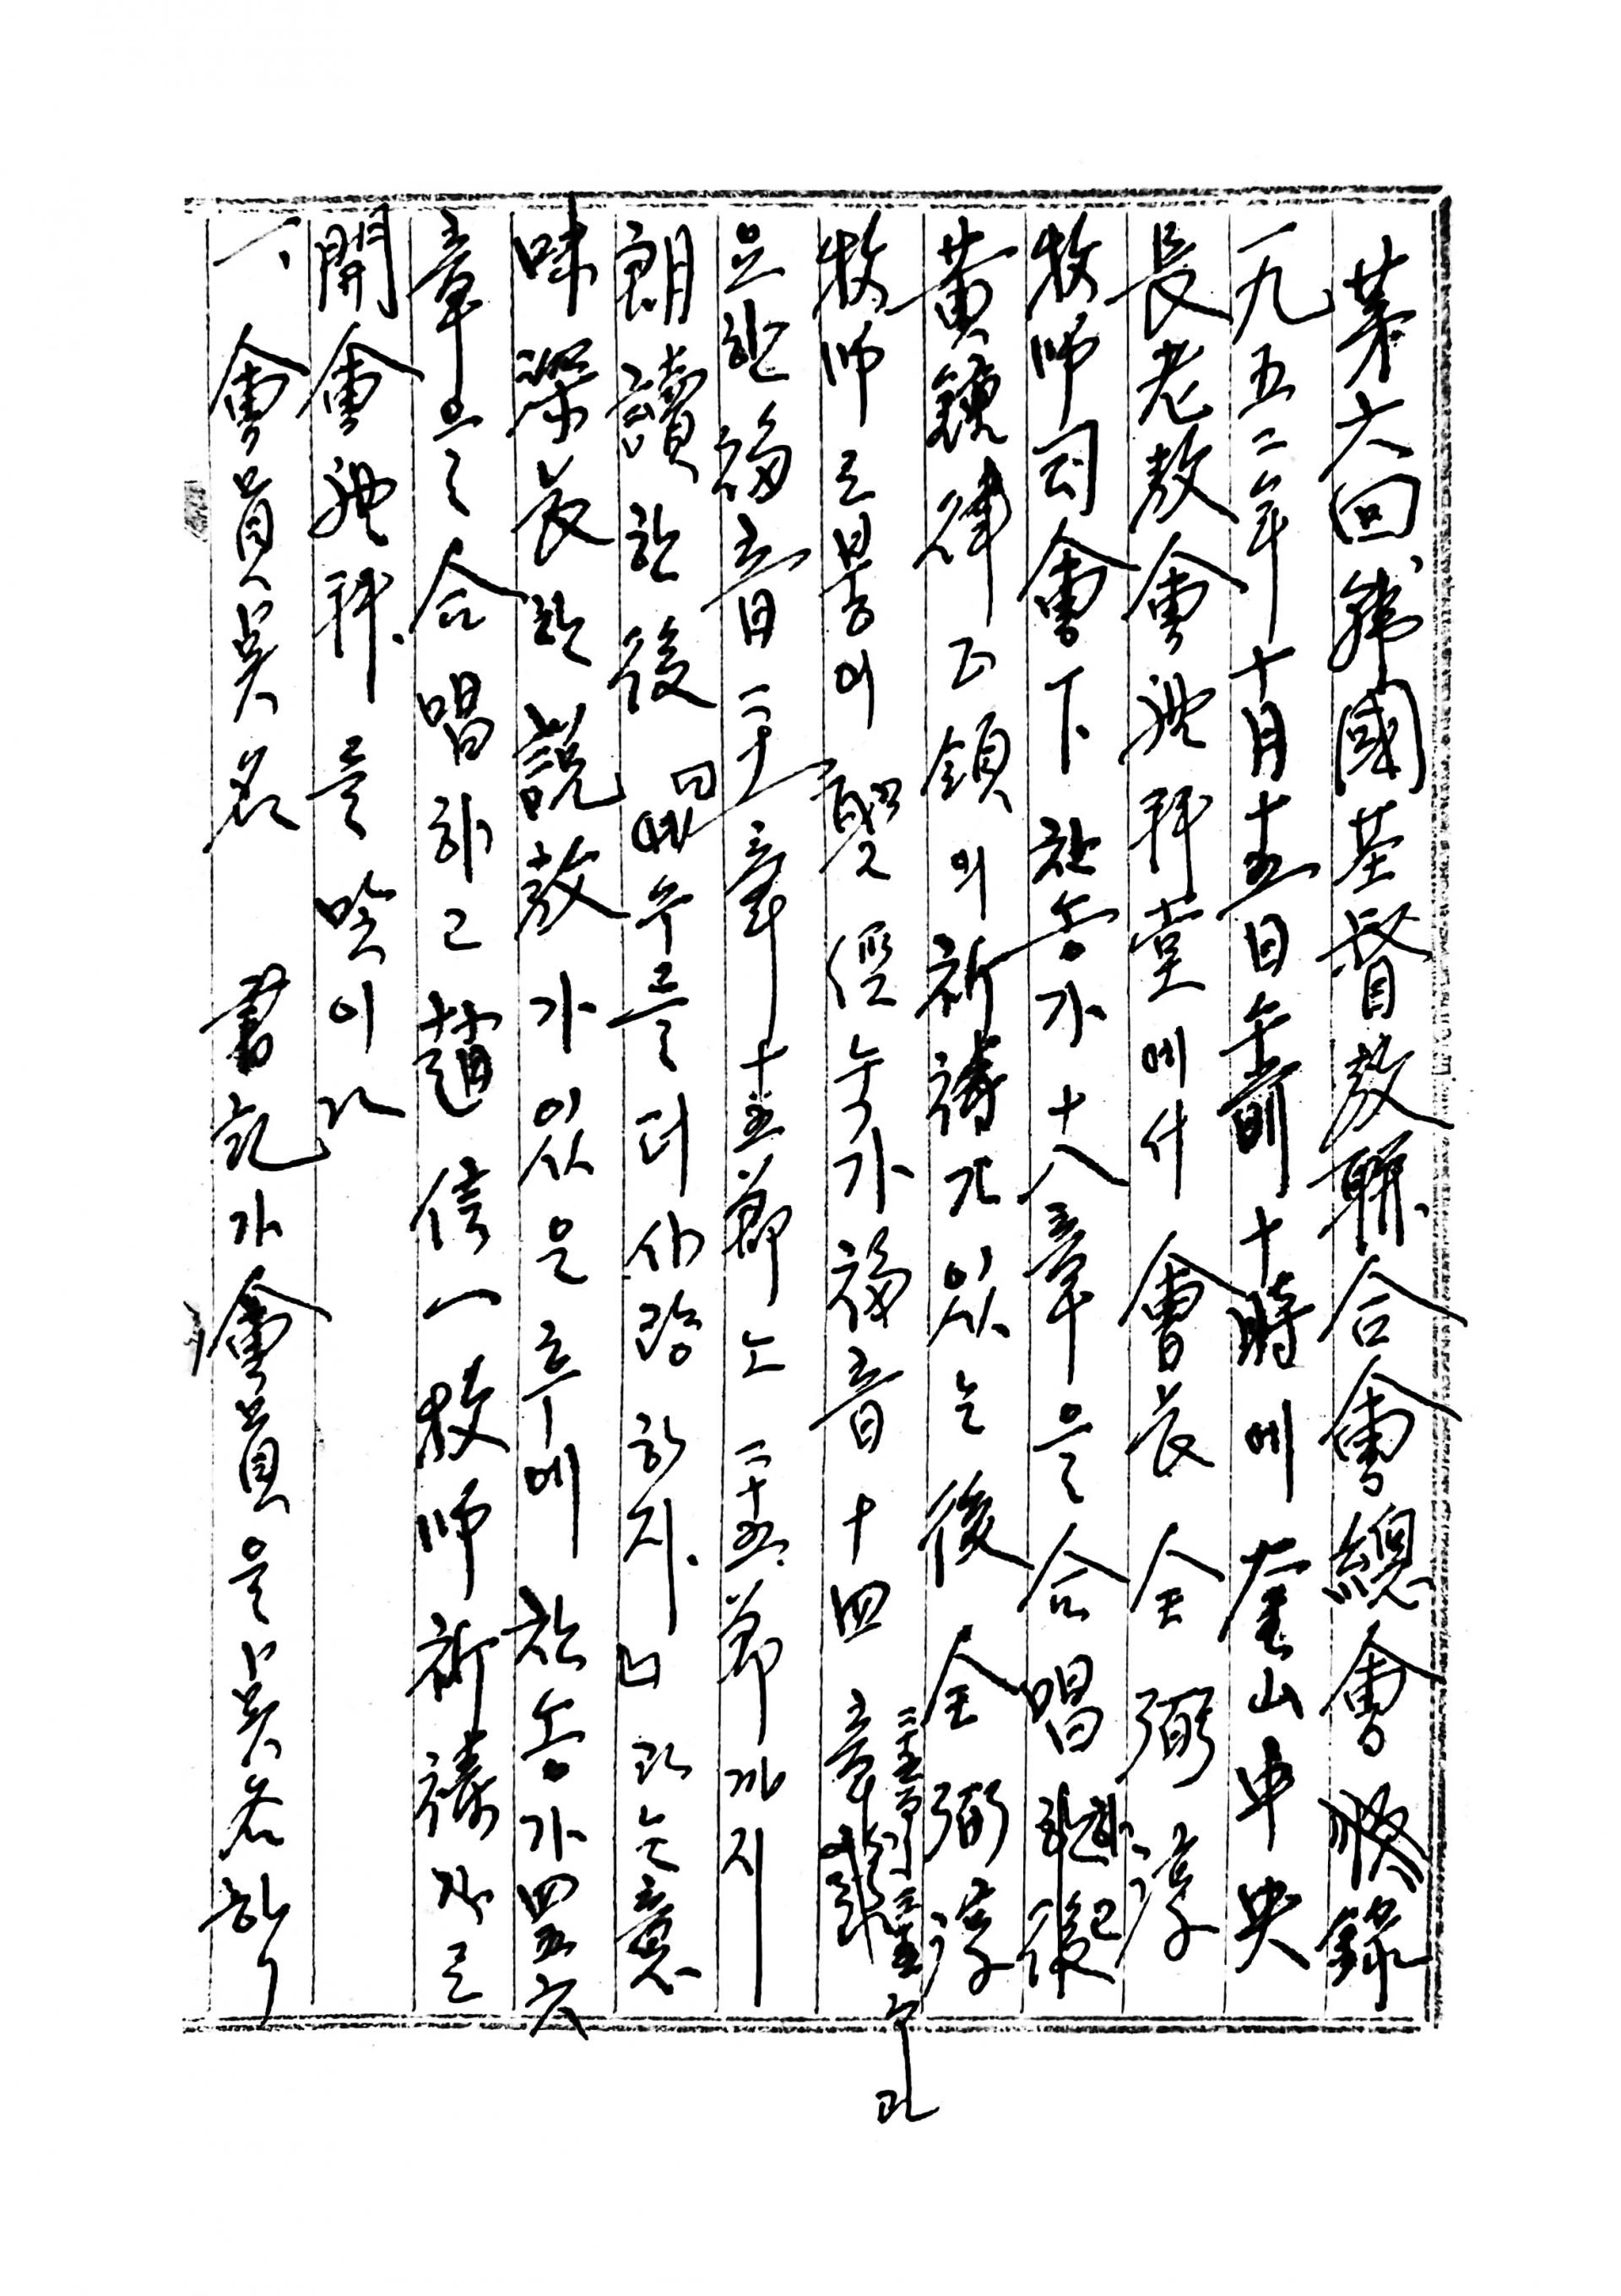 第六回 韓國基督敎聯合會總會 會錄
一九五二年 十月 十五日 午前 十時에 釜山中央
長老敎會 禮拜堂에서 會長 全弼淳
牧師 司會下 찬송가 十八章을 合唱하고 後
黃鍾律 正領의 祈禱가 있은 後 全弼淳
牧師로붙어 聖經 누가福音 十四章 二十五節 과
요한福音 二十一章 十五節노 二十五節까지
朗讀한 後 「네누를더사랑하지」라는 意
味深長한 說敎가 있은 후에 찬송가 四五六
章으로 合唱하고 趙信一 牧師 祈禱하므로
開會禮拜를 맟이다
一、會員 呉名 書記가 會員을 呉名하니